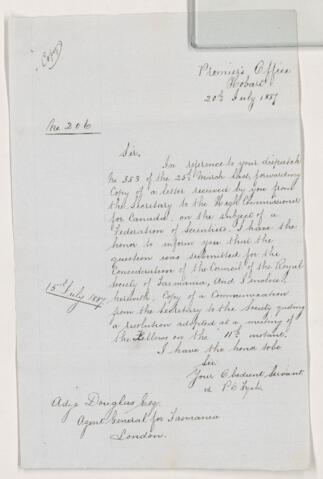 Copy
Premier's Office
Hobart
20th July 1887
No. 206
Sir,
In reference to your dispatch
No 353 of the 25th March last, forwarding
Copy of a letter received by you from
the Secretary to the High Commissioner
for Canada, on the subject of a
Federation of Scientists, I have the
honor to inform you that the
question was submitted for the
Consideration of the Council of the Royal
Society of Tasmania, and I enclose
15th July 1887
herewith, Copy of a Communication
from the Secretary to the Society giving
a resolution adopted at a meeting of
the Fellows on the 11th instant.
I have the honor to be
Sir
Your Obedient Servant
P O Fysh
Adye Douglas Esq
Agent General for Tasmania
London.